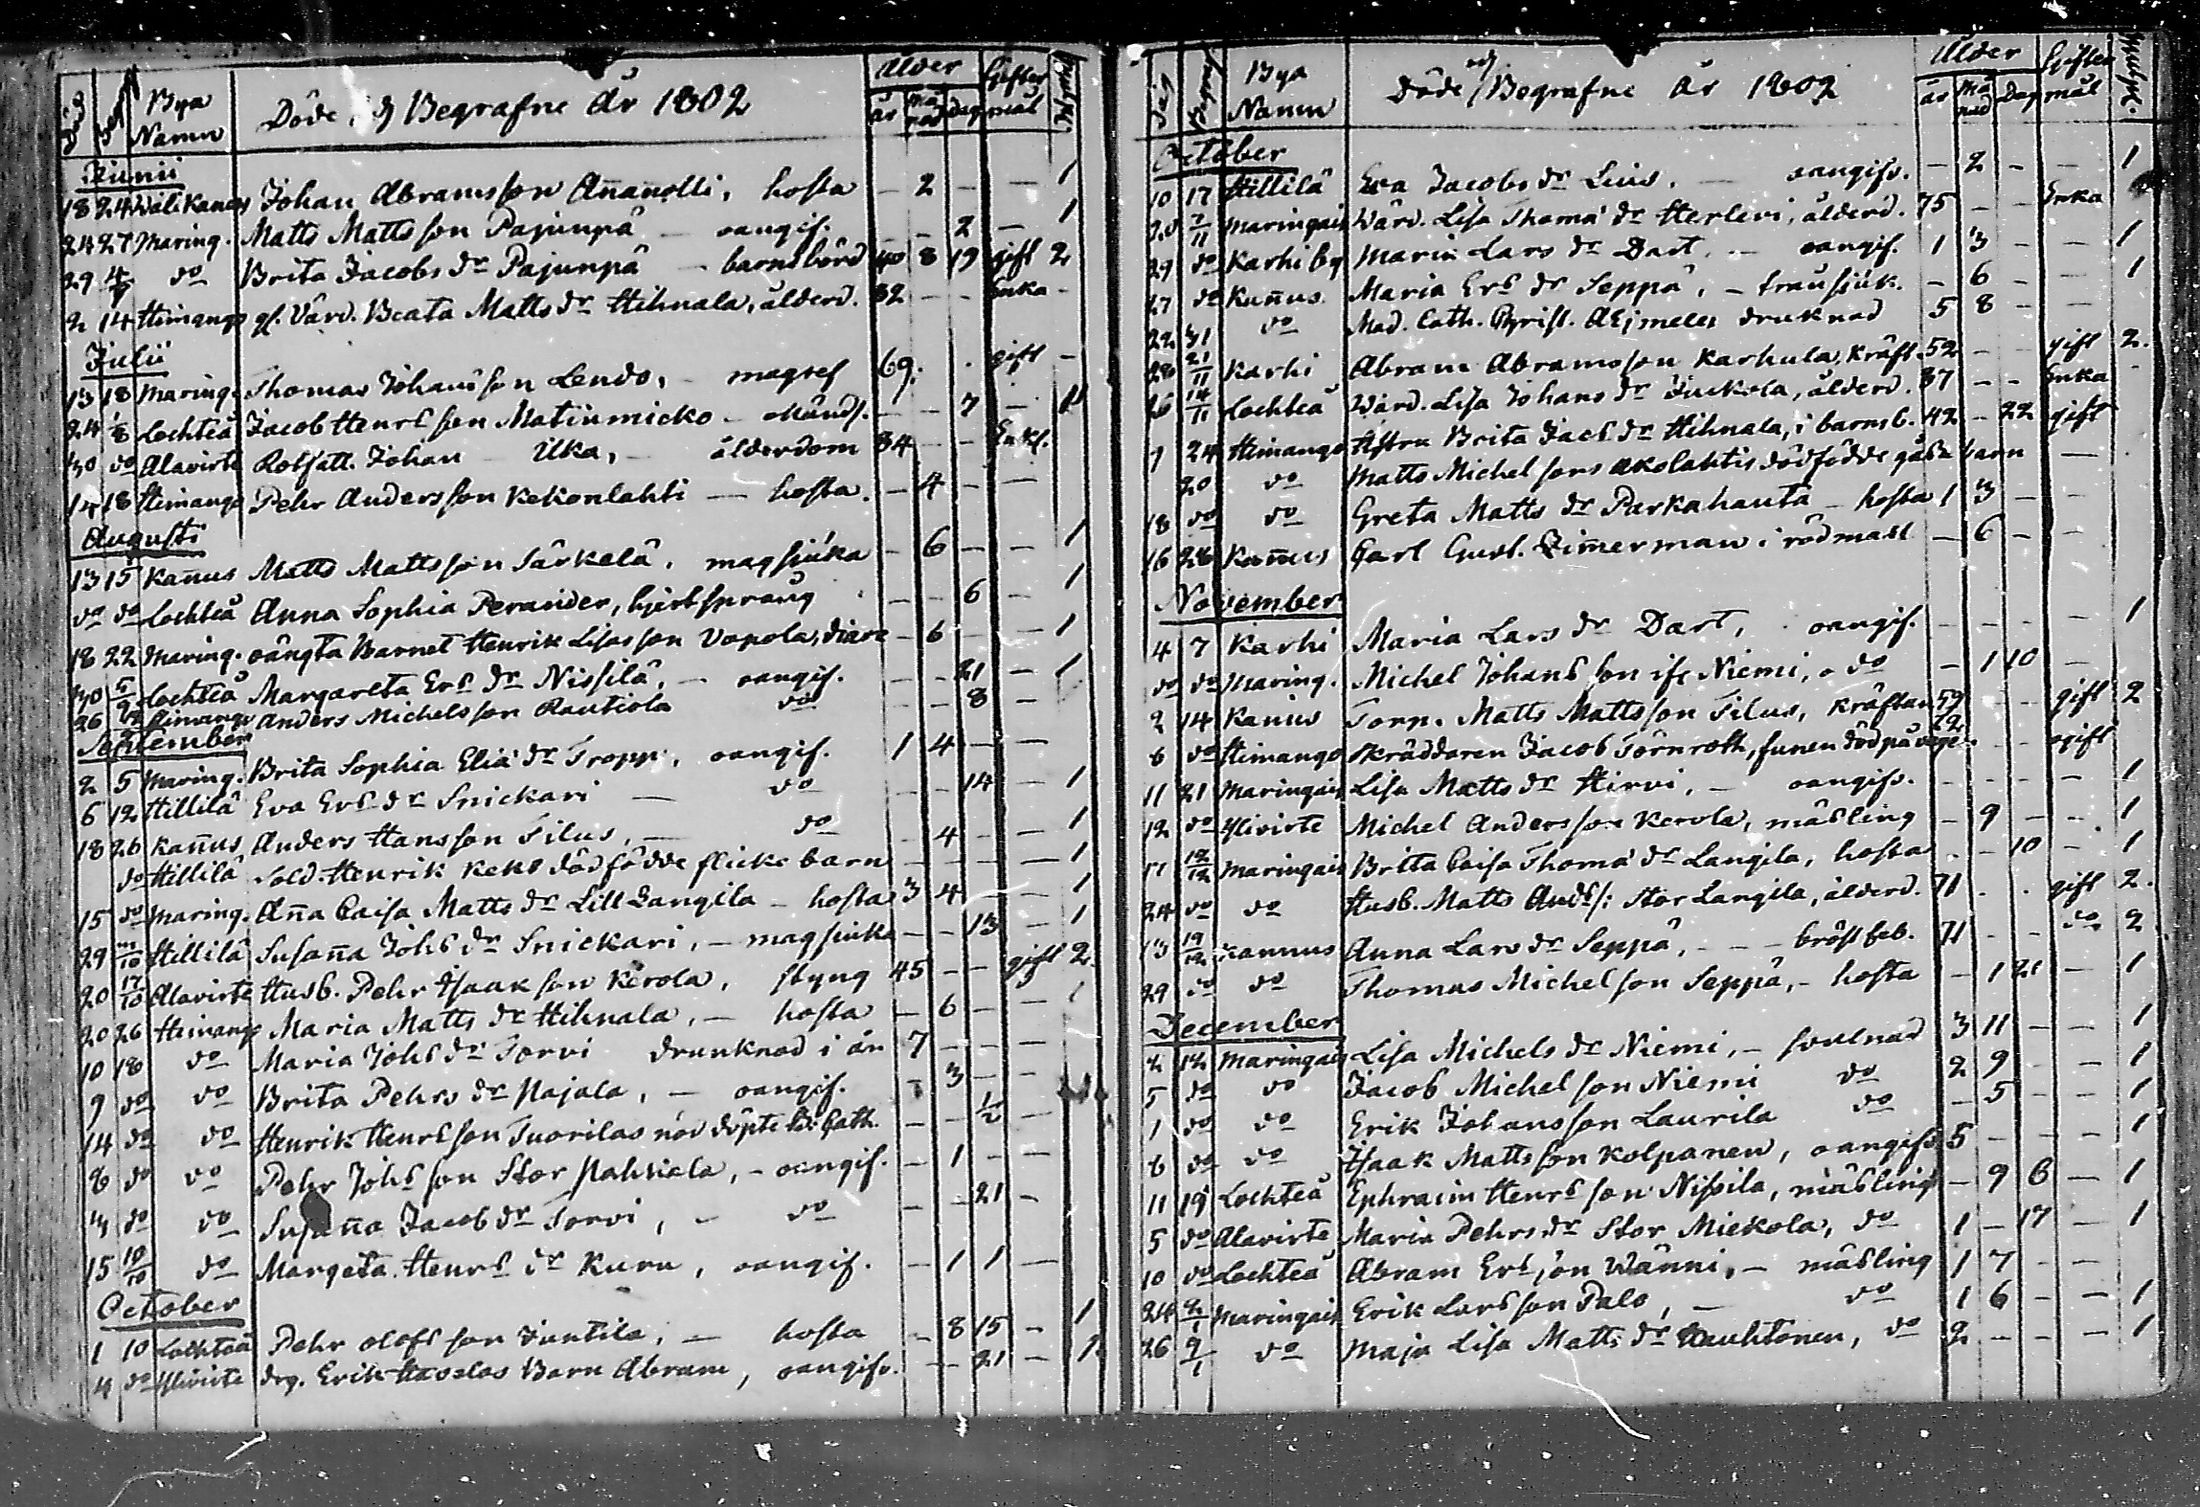 Död Begr. Bya Namn Döde och Begrafne År 1802 Ålder år månad Dag Giftermål
Junii
18 24 Wälikangas Johan Abramsson Anañolli, hosta - 2 - - 1
24 27 Maring. Matts Mattsson Pajunpä - oangif. - - 2 - 1
29 4/7 do Brita Jacobs dr Pajunpä - barnsbörd 40 8 19 gift 2
2 14 Himango gl. Värd. Beata Matts dr Hihnala, ålderd. 82 - - Enka -
Julii
13 18 Maring. Thomas Johansson Lendo, - magref 69. . gift -
24 1/8 Lochteå Jacob Henrs son Matinmicko - - - 7 - 1
30 do Alavirte Rotsatt. Johan Uka, - ålderdom 84 - - Enkl.
14 18 Himango Pehr Andersson Kekonlahti - hosta. - 4 - -
Augusti
13 15 Kañus Matts Mattsson Särkelä, magsjuka - 6 - - 1
do do Lochteå Anna Sophia Perander, hjertsprång - - 6 - 1
18 22 Maring. oängta Barnet Henrik Lisasson Vopola, diare - 6 - - 1
30 5/9 Lochteå Margareta Ers dr Nissilä, - oangif. - - 21 - 1
26 Himango Anders Michelsson Rautiola do - - 8 -
September
2 5 Maring. Brita Sophia Eliæ dr Tropp, oangif. 1 4 - -
6 12 Hillilä Eva Ers dr Snickari - do - - 14 - 1
18 26 Kañus Anders Hansson Tilus, - do - 4 - - 1
do Hillilä Sold. Henrik Keks dödfödde flicke barn - - - - 1
15 do Maring. Aña Caisa Matts dr Lill Langila - hosta 3 4 - - 1
29 3/10 Hillilä Susaña Johs dr Snickari, - magsjuka - - 13 - 1
20 17/10 Alavirte Husb. Pehr Isaaksson Kerola, styng 45 - - gift 2
20 26 Himango Maria Matts dr Hihnala, - hosta - 6 - - 1
10 18 do Maria Johs dr Torvi drunknad i ån 7 - - -
9 do do Brita Pehrs dr Pajala, - oangif. - 3 - -
14 do do Henrik Henrs son Tuorilas nöd döpte Cath. - - 1/2 -
8 do do Pehr Johs son Stor Pahkala, - oangif. - 1 - -
4 do do Susaña Jacob dr Torvi, - do - - 21 -
15 10/10 do Margeta Henrs dr Kuru, oangif. - 1 1 -
October
1 10 Lochteå Pehr Olofs son Juntila, - hosta - 8 15 - 1
4 do Ylivirte drg. Erik Hasslas Barn Abram, oangifv. - - 21 - 1
Dag Begraf. Bya Namn Döde och Begrafne År 1802 Ålder år månad Dag Giftermål
October
10 17 Hillilä Eva Jacobs dr Leis, - oangifv. - 2 - - 1
20 7/11 Maringais Värd. Lisa Thomæ dr Herlevi, ålderd. 75 - - Enka
29 do Karhi by Maria Lars dr Dart, - oangif. 1 3 - - 1
27 do Kañus Maria Ers dr Seppä, - - 6 - - 1
22 31 do Mad. Cath. Christ. Aejmelei druknad 5 8 - -
28 21/11 Karhi Abram Abramsson Karhula, kräft. 52 - - gift 2.
26 14/11 Lochteå Wärd. Lisa Johans dr Juckola, ålderd. 87 - - Enka
7 24 Himango Hstru Brita Jacs dr Hihnala, i barnsb. 42 - 22 gift
20 do Matts Michelsons Akolahtis dödfödde gåße barn -
18 do do Greta Matts dr Parkahauta - hosta 1 3 - -
16 28 Kañus Carl Gust. Zim̃erman i rödmasl - 6 - -
November
4 7 Karhi Maria Lars dr Dart, oangif. - - - - 1
do do Maring. Michel Johans son Niemi, do - 1 10 -
2 14 Kañus Torp. Matts Mattsson Tilus, kräftan 59 - - gift 2
6 do Himango Skräddaren Jacob Törnroth, funnen död på 72 - - ogift
11 21 Maringais Lisa Matts dr Hirvi, - oangifv. - - - - 1
12 do Ylivirte Michel Andersson Kerola, mäßling - 9 - - 1
17 12/12 Maringais Britta Caisa Thomæ dr Langila, hosta . - 10 - 1
24 do do Husb. Matts Ands s: Stor Langila, ålderd. 71 . . gift 2.
13 19/12 Kannus Anna Lars dr Seppä, - - - bröst feb. 71 - - do 2
29 do do Thomas Michelsson Seppä, - hosta - 1 21 - 1
December
2 12 Maringais Lisa Michels dr Niemi, - svulnad 3 11 - - 1
5 do do Jacob Michelsson Niemi do 2 9 - - 1
1 do do Erik Johansson Laurila do - 5 - - 1
6 do do Isaak Mattsson Kolpanen, oangifv. 5 - - - 1
11 19 Lochteå Ephraim Henrs son Nissila, mäßling - 9 6 - 1
5 do Alavirte Maria Pehrs dr Stor Mickola, do 1 - 17 - 1
10 do Lochteå Abram Ers son Wänni, - mäßling 1 7 - -
24 2/1 Maringais Erik Lars son Palo, - do 1 6 - - 1
26 9/1 do Maja Lisa Matts dr Kauhtonen, do 2 - - - 1